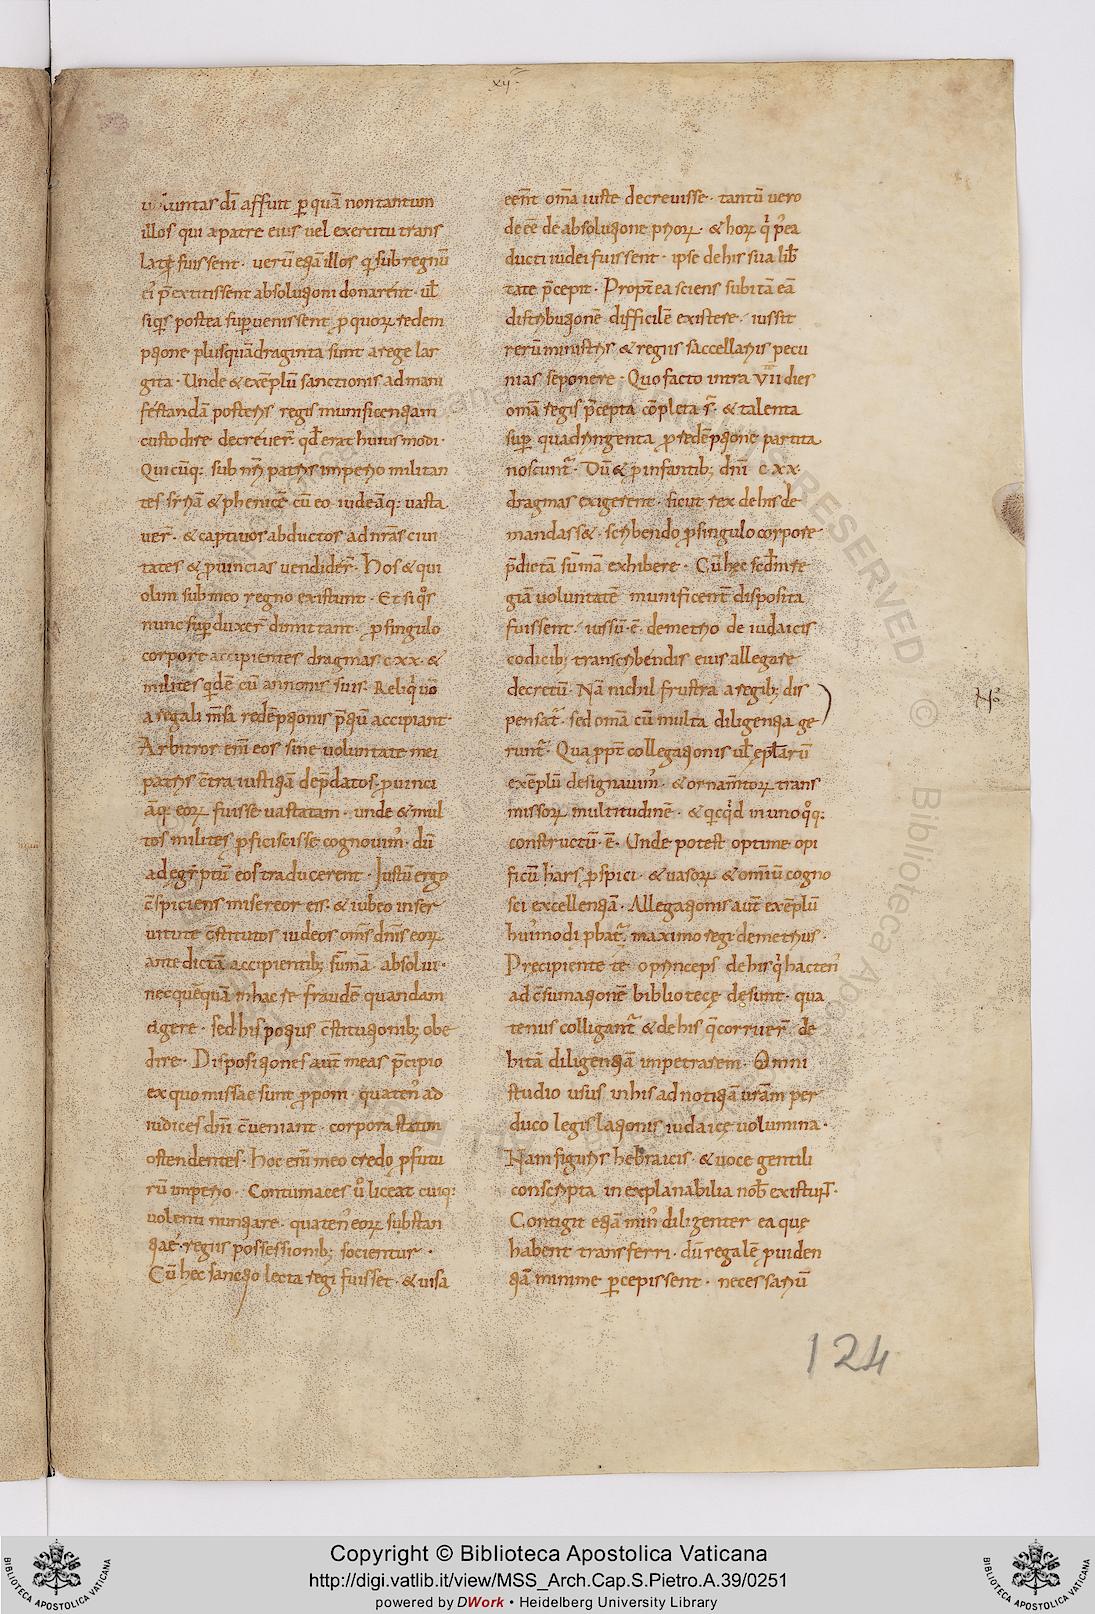 xij
uoluntas dī affuit ꝑ quā non tantum
illos qui a patre eius uel exercitu trans
latę fuissent · uerū etiā illos q̄ sub regnū
ei᷒ p̄extitissent absolutioni donarent · ul̄
siq̄s postea suꝑuenissent ꝓ quoꝝ redem
ptione plusquā draginta sunt a rege lar
gita · Unde & exēplū sanctionis ad mani
festandā posteris regis munificentiam
custodire decreuer̄ qd̄ erat huius modi ·
Qui cūq; sub nr̄i patris imperio militan
tes sẏriā & phenicē cū eo iudeāq; uasta
uer̄ · & captiuos abductos ad nr̄as ciui
tates & ꝓuincias uendider̄ · Hos & qui
olim sub meo regno existunt · Et si q̊s
nunc suꝑduxer̄ dimittant · ꝓ singulo
corpore accipientes dragmas c xx · &
milites qidē cū annonis suis Reliqi uo
a regali m̄sa redēptionis p̄tiū accipiant ·
Arbitror eni eos sine uoluntate mei
patris c̄tra iustitiā dep̄datos · ꝓuinci
āq; eoꝝ fuisse uastatam · unde & mul
tos milites ꝓficiscisse cognouim᷒ · dū
ad egẏptū eos traducerent · Iustū ergo
c̄spiciens misereor eis · & iubeo in ser
uitute c̄stitutos iudeos om̄s dn̄is eoꝝ
ante dictā accipientib; sūmā · absolui ·
nec quēquā in hac re fraudē quandam
agere · sed his potius c̄stitutionib; obe
dire · Dispositiones aut̄ meas p̄cipio
ex quo missae sunt ꝓponi · quaten᷒ ad
iudices dn̄i c̄ueniant · corpora statim
ostendentes · Hoc eni meo credo ꝓfutu
rū imperio · Contumaces ů liceat cuiq;
uolenti nuntiare · quaten᷒ eoꝝ substan
tiae regiis possessionib; socientur ·
Cū hec sanctio lecta regi fuisset · & uisa
eent om̄a iuste decreuisse · tantū uero
deēē de absolutione prioꝝ · & hoꝝ qi p᷒ea
ducti iudei fuissent · ipse de his sua lib̄
tate p̄cepit · Propt̄ea sciens subitā eā
distributionē difficilē existere · iussit
rerū ministris & regiis saccellariis pecu
nias seponere · Quo facto intra vii dies
om̄a regis p̄cepta cōpleta st̄ · & talenta
suꝑ quadringenta ꝓ redēptione partita
noscunt᷑ · Dū & ꝓ infantib; dn̄i c xx ·
dragmas exigerent · sicut rex de his de
mandass& · scribendo ꝓ singulo corpore
p̄dictā sūmā exhibere · Cū hec sed̄m re
giā uoluntatē munificent̄ disposita
fuissent · iussū · ē · demetrio de iudaicis
codicib; transcribendis eius allegare
decretū · Nā nichil frustra a regib; dis
pensat᷑ · sed om̄a cū multa diligentia ge
runt᷑ · Qua ppt̄ collegationis ul̄ epl̄arū
exēplū designauim᷒ · & ornam̄toꝝ trans
missoꝝ multitudinē · & qicqid in uno q̊q;
constructū · ē · Unde potest optime opi
ficū h̄ ars ꝑspici · & uasoꝝ & omniū cogno
sci excellentiā · Allegationis aut̄ exēplū
hui᷒modi pbat᷑ · maximo regi demetrius ·
Precipiente te o princeps de his qi hacten᷒
ad c̄sumationē bibliotecę dęsunt · qua
tenus colligant᷑ & de his q̄ corruer̄ de
bitā diligentiā impetrarem · Omni
studio usus in his ad notitiā ur̄am per
duco legis latoris iudaicę uolumina ·
Nam figuris hebraicis & uoce gentili
conscripta inexplanabilia nob̄ existunt ·
Contigit etiā min᷒ diligenter ea quę
habent transferri · dū regalē ꝓuiden
tiā minime ꝑcepissent · necessariū
124
Copyright © Biblioteca Apostolica Vaticana
http://digi.vatlib.it/view/MSS_Arch.Cap.S.Pietro.A.39/0251
powered by DWork • Heidelberg University Library
BIBLIOTECA APOSTOLICA VATICANA
BIBLIOTECA APOSTOLICA VATICANA